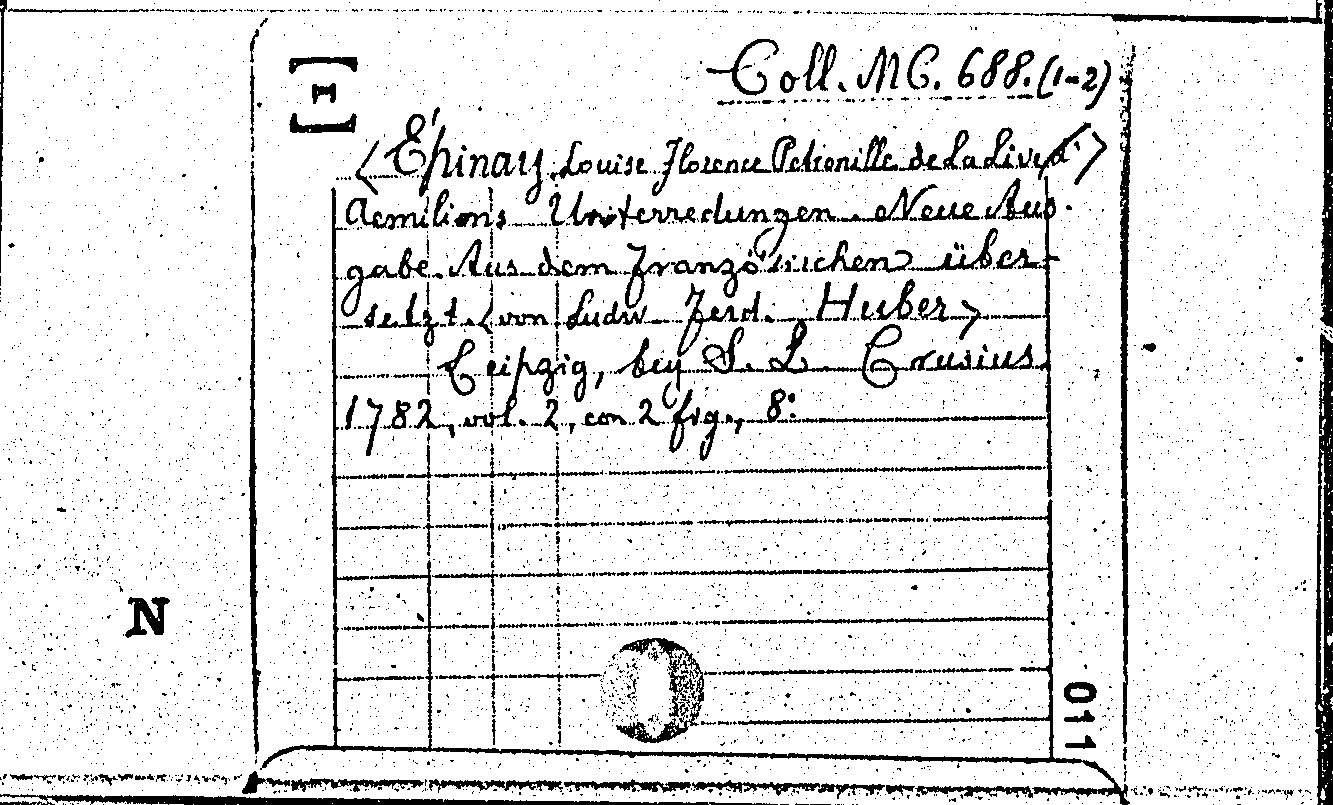 Coll. MC. 688. (1-2)
[I]
<Épinay, Louise Florence Petronille de La Live d'>
Aemiliens Unterredungen. Neue Aus-
gabe. Aus dem Französischen über-
setzt. <von Ludw. Ferd. Huber>
Leipzig, bey S. L. Crusius
1782, vol. 2, con 2 fig., 8:
N
011